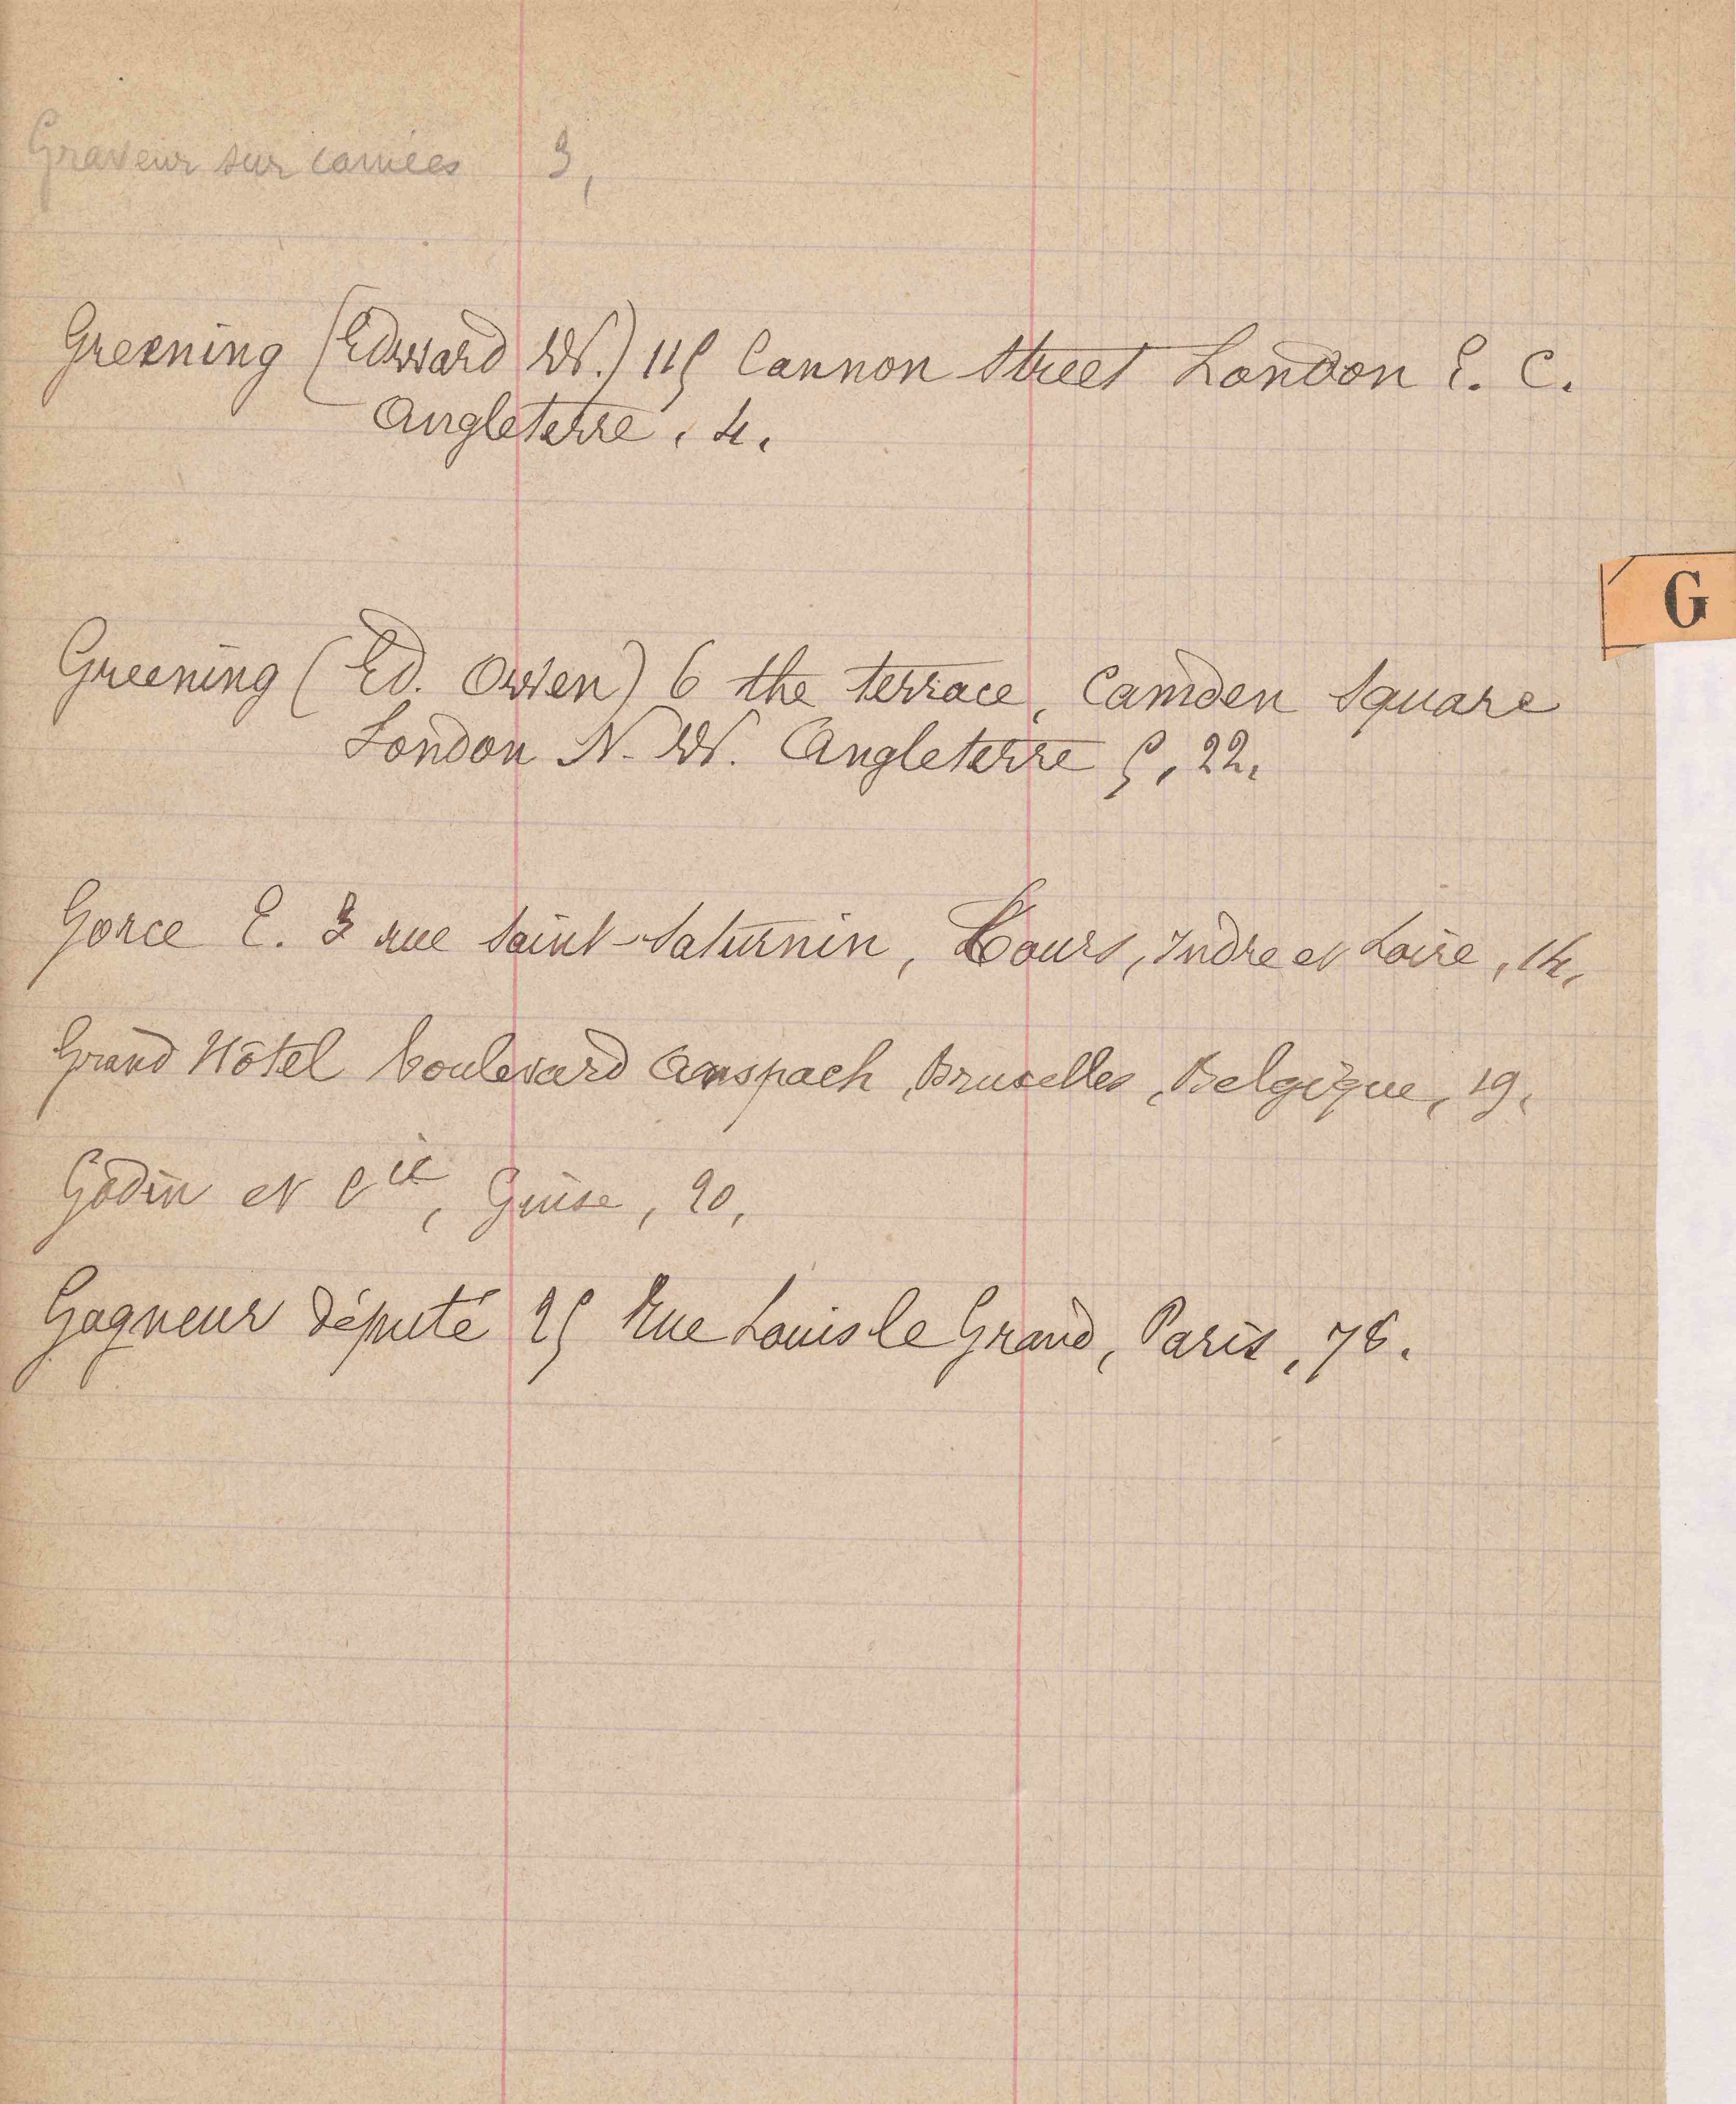 Graveur sur camées 3,
Greening (Edward W.) 115 Cannon Street London E. C.
Angleterre, 4.
G
Greening (Ed. Owen) 6 the terrace, Camden Square
London N. W. Angleterre 5, 22.
Gorce E. 3 rue Saint-Saturnin, Tours, Indre et Loire, 14,
Grand Hôtel boulevard Anspach, Bruxelles, Belgique, 19,
Godin et Cie, Guise, 20,
Gagneur député 25 Rue Louis le Grand, Paris, 76.